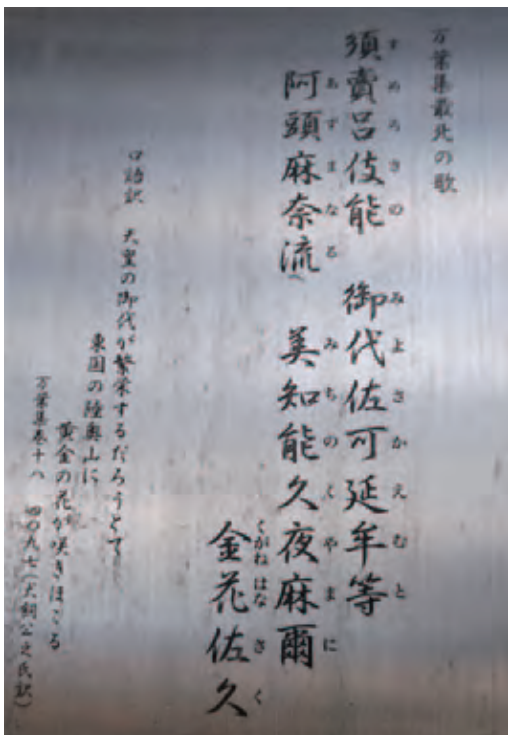 万葉集最北の歌
須賣呂伎能　御代佐可延牟等
すめろきの　みよさかえむと
阿頭麻奈流　美知能久夜麻爾
あずまなる　みちのくやまに
金花佐久
くがねはなさく
口語訳　天皇の御代が繁栄するだろうとて
東国の陸奥山に
黄金の花が咲きほこる
万葉集巻十八　四〇九七（犬飼公之氏訳）